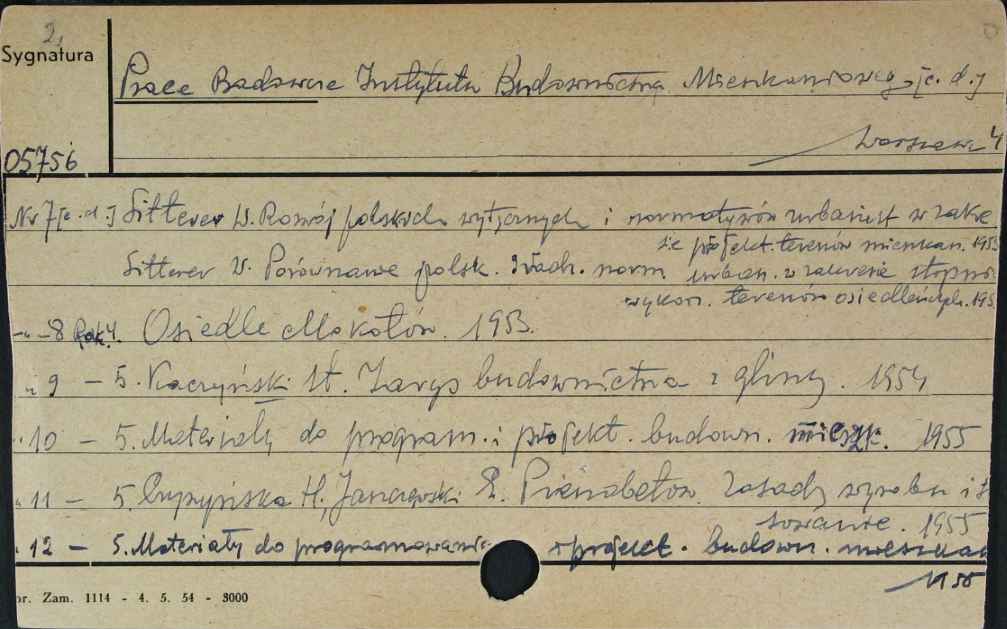 2.
Sygnatura
Prace Badawcze Instytutu Budownictwa Mieszkaniowego [c. d.]
Warszawa
05756
Nr 7 [c. d.] Litterer W. Rozwój polskich wytycznych i normatywów urbanist w zakre
sie projekt. terenów mieszkan. 195
Litterer W. Porównawe polsk. i radz. norm. urban. w zakresie stopno
wykorz. terenów osiedleńczych. 195
" - 8 Rok 4. Osiedle Mokotów. 1953.
" 9 - 5. Kaczyński St. Zarys budownictwa z gliny. 1954
" 10 - 5. Materiały do program. i projekt. budown. mieszk. 1955
" 11 - 5. H, Janczewski Z. Pianobeton. Zasady wyrobu i s
sowanie. 1955
" 12 - 5. Materiały do programowania i projekt. budown. mieszkan
1955
or. Zam. 1114 - 4. 5. 54 - 3000